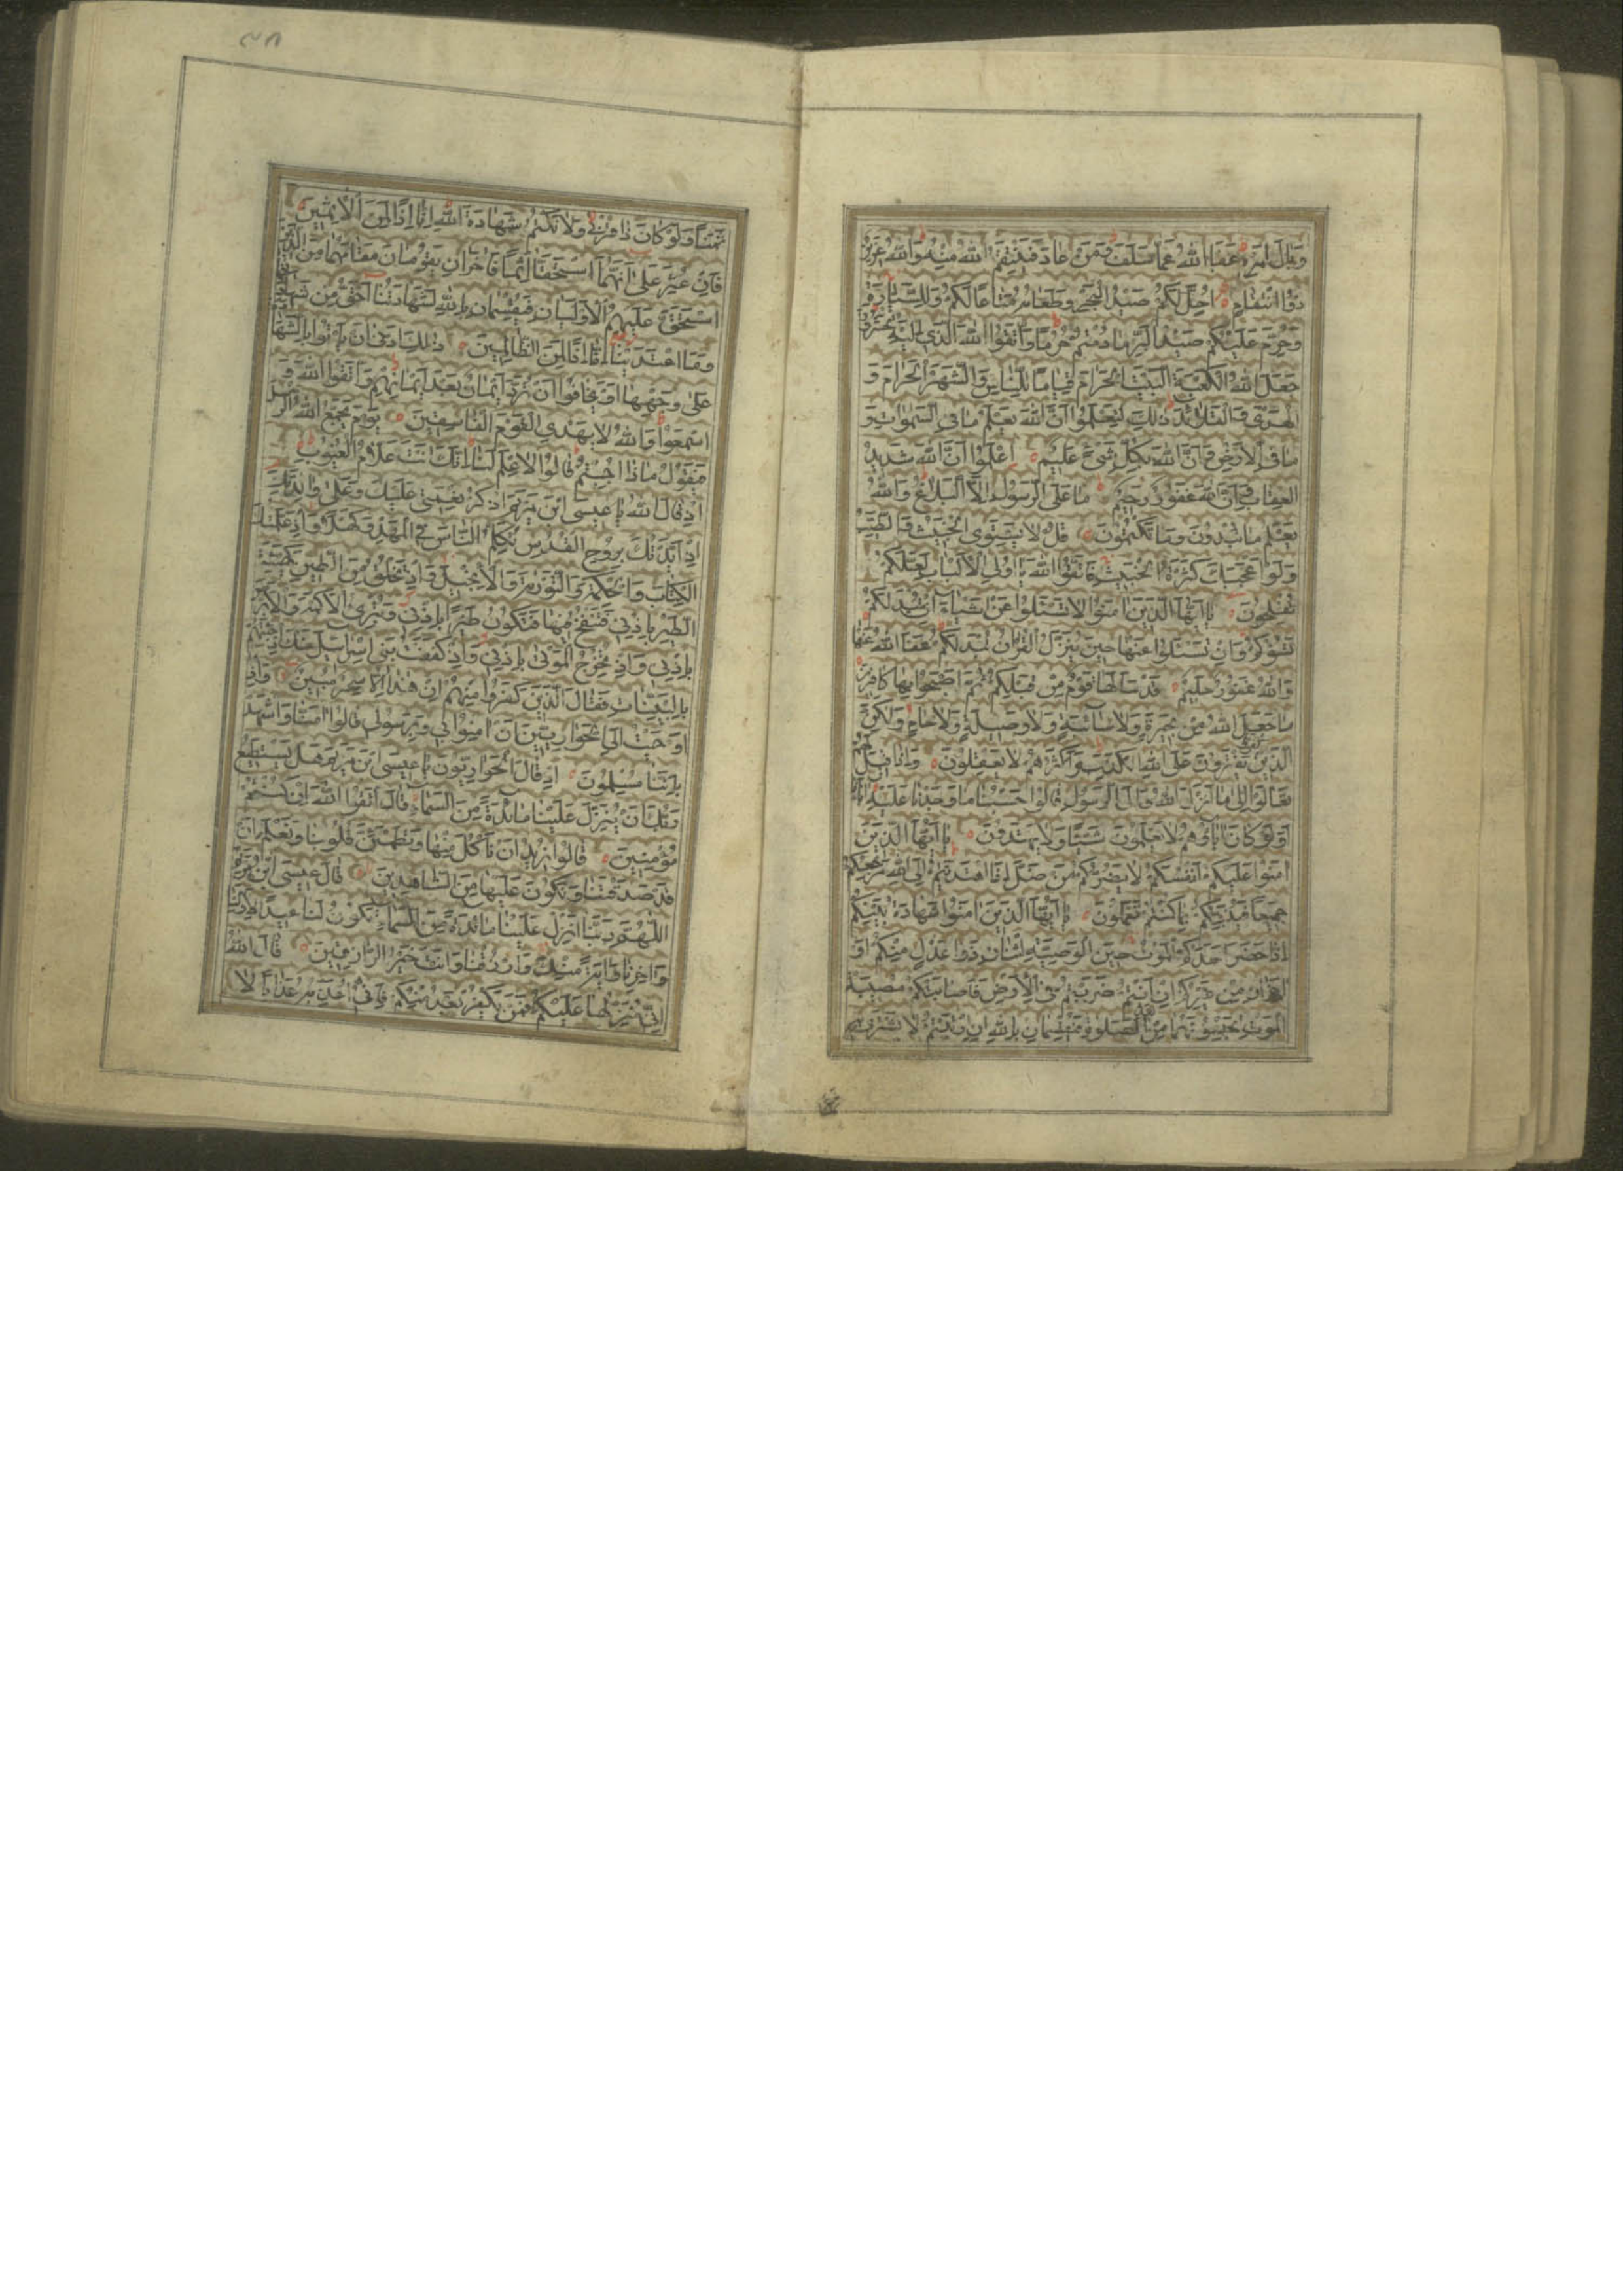 وَبَالَ اَمْرِهٖ عَفَا اللّٰهُ عَمَّا سَلَفَ وَمَنْ عَادَ فَيَنْتَقِمُ اللّٰهُ مِنْهُ وَاللّٰهُ عَزِيزٌ
ذُوا انْتِقَامٍ اُحِلَّ لَكُمْ صَيْدُ الْبَحْرِ وَطَعَامُهُ مَتَاعًا لَكُمْ وَلِلسَّيَّارَةِ
وَحُرِّمَ عَلَيْكُمْ صَيْدُ الْبَرِّ مَا دُمْتُمْ حُرُمًا وَاتَّقُوا اللّٰهَ الَّذِي اِلَيْهِ تُحْشَرُونَ
جَعَلَ اللّٰهُ الْكَعْبَةَ الْبَيْتَ الْحَرَامَ قِيَامًا لِلنَّاسِ وَالشَّهْرَ الْحَرَامَ وَ
الْهَدْيَ وَالْقَلَائِدَ ذٰلِكَ لِتَعْلَمُوا اَنَّ اللّٰهَ يَعْلَمُ مَا فِي السَّمٰوَاتِ وَ
مَا فِي الْاَرْضِ وَاَنَّ اللّٰهَ بِكُلِّ شَيْءٍ عَلِيمٌ اِعْلَمُوا اَنَّ اللّٰهَ شَدِيدُ
الْعِقَابِ وَاَنَّ اللّٰهَ غَفُورٌ رَحِيمٌ مَا عَلَى الرَّسُولِ اِلَّا الْبَلَاغُ وَاللّٰهُ
يَعْلَمُ مَا تُبْدُونَ وَمَا تَكْتُمُونَ قُلْ لَا يَسْتَوِي الْخَبِيثُ وَالطَّيِّبُ
وَلَوْ اَعْجَبَكَ كَثْرَةُ الْخَبِيثِ فَاتَّقُوا اللّٰهَ يَا اُولِي الْاَلْبَابِ لَعَلَّكُمْ
تُفْلِحُونَ يَا اَيُّهَا الَّذِينَ اٰمَنُوا لَا تَسْئَلُوا عَنْ اَشْيَاءَ اِنْ تُبْدَ لَكُمْ
تَسُؤْكُمْ وَاِنْ تَسْئَلُوا عَنْهَا حِينَ يُنَزَّلُ الْقُرْاٰنُ تُبْدَ لَكُمْ عَفَا اللّٰهُ عَنْهَا
وَاللّٰهُ غَفُورٌ حَلِيمٌ قَدْ سَاَلَهَا قَوْمٌ مِنْ قَبْلِكُمْ ثُمَّ اَصْبَحُوا بِهَا كَافِرِينَ
مَا جَعَلَ اللّٰهُ مِنْ بَحِيرَةٍ وَلَا سَائِبَةٍ وَلَا وَصِيلَةٍ وَلَا حَامٍ وَلٰكِنَّ
الَّذِينَ كَفَرُوا يَفْتَرُونَ عَلَى اللّٰهِ الْكَذِبَ وَاَكْثَرُهُمْ لَا يَعْقِلُونَ وَاِذَا قِيلَ لَهُمْ
تَعَالَوْا اِلٰى مَا اَنْزَلَ اللّٰهُ وَاِلَى الرَّسُولِ قَالُوا حَسْبُنَا مَا وَجَدْنَا عَلَيْهِ اٰبَاءَنَا
اَوَلَوْ كَانَ اٰبَاؤُهُمْ لَا يَعْلَمُونَ شَيْئًا وَلَا يَهْتَدُونَ يَا اَيُّهَا الَّذِينَ
اٰمَنُوا عَلَيْكُمْ اَنْفُسَكُمْ لَا يَضُرُّكُمْ مَنْ ضَلَّ اِذَا اهْتَدَيْتُمْ اِلَى اللّٰهِ مَرْجِعُكُمْ
جَمِيعًا فَيُنَبِّئُكُمْ بِمَا كُنْتُمْ تَعْمَلُونَ يَا اَيُّهَا الَّذِينَ اٰمَنُوا شَهَادَةُ بَيْنِكُمْ
اِذَا حَضَرَ اَحَدَكُمُ الْمَوْتُ حِينَ الْوَصِيَّةِ اثْنَانِ ذَوَا عَدْلٍ مِنْكُمْ اَوْ
اٰخَرَانِ مِنْ غَيْرِكُمْ اِنْ اَنْتُمْ ضَرَبْتُمْ فِي الْاَرْضِ فَاَصَابَتْكُمْ مُصِيبَةُ
الْمَوْتِ تَحْبِسُونَهُمَا مِنْ بَعْدِ الصَّلٰوةِ فَيُقْسِمَانِ بِاللّٰهِ اِنِ ارْتَبْتُمْ لَا نَشْتَرِي بِهِ
ثَمَنًا وَلَوْ كَانَ ذَا قُرْبٰى وَلَا نَكْتُمُ شَهَادَةَ اللّٰهِ اِنَّا اِذًا لَمِنَ الْاٰثِمِينَ
فَاِنْ عُثِرَ عَلٰى اَنَّهُمَا اسْتَحَقَّا اِثْمًا فَاٰخَرَانِ يَقُومَانِ مَقَامَهُمَا مِنَ الَّذِينَ
اسْتَحَقَّ عَلَيْهِمُ الْاَوْلَيَانِ فَيُقْسِمَانِ بِاللّٰهِ لَشَهَادَتُنَا اَحَقُّ مِنْ شَهَادَتِهِمَا
وَمَا اعْتَدَيْنَا اِنَّا اِذًا لَمِنَ الظَّالِمِينَ ذٰلِكَ اَدْنٰى اَنْ يَاْتُوا بِالشَّهَادَةِ
عَلٰى وَجْهِهَا اَوْ يَخَافُوا اَنْ تُرَدَّ اَيْمَانٌ بَعْدَ اَيْمَانِهِمْ وَاتَّقُوا اللّٰهَ وَ
اسْمَعُوا وَاللّٰهُ لَا يَهْدِي الْقَوْمَ الْفَاسِقِينَ يَوْمَ يَجْمَعُ اللّٰهُ الرُّسُلَ
فَيَقُولُ مَاذَا اُجِبْتُمْ قَالُوا لَا عِلْمَ لَنَا اِنَّكَ اَنْتَ عَلَّامُ الْغُيُوبِ
اِذْ قَالَ اللّٰهُ يَا عِيسَى ابْنَ مَرْيَمَ اذْكُرْ نِعْمَتِي عَلَيْكَ وَعَلٰى وَالِدَتِكَ
اِذْ اَيَّدْتُكَ بِرُوحِ الْقُدُسِ تُكَلِّمُ النَّاسَ فِي الْمَهْدِ وَكَهْلًا وَاِذْ عَلَّمْتُكَ
الْكِتَابَ وَالْحِكْمَةَ وَالتَّوْرٰيةَ وَالْاِنْجِيلَ وَاِذْ تَخْلُقُ مِنَ الطِّينِ كَهَيْئَةِ
الطَّيْرِ بِاِذْنِي فَتَنْفُخُ فِيهَا فَتَكُونُ طَيْرًا بِاِذْنِي وَتُبْرِئُ الْاَكْمَهَ وَالْاَبْرَصَ
بِاِذْنِي وَاِذْ تُخْرِجُ الْمَوْتٰى بِاِذْنِي وَاِذْ كَفَفْتُ بَنِي اِسْرَائِيلَ عَنْكَ اِذْ جِئْتَهُمْ
بِالْبَيِّنَاتِ فَقَالَ الَّذِينَ كَفَرُوا مِنْهُمْ اِنْ هٰذَا اِلَّا سِحْرٌ مُبِينٌ وَاِذْ
اَوْحَيْتُ اِلَى الْحَوَارِيِّينَ اَنْ اٰمِنُوا بِي وَبِرَسُولِي قَالُوا اٰمَنَّا وَاشْهَدْ
بِاَنَّنَا مُسْلِمُونَ اِذْ قَالَ الْحَوَارِيُّونَ يَا عِيسَى ابْنَ مَرْيَمَ هَلْ يَسْتَطِيعُ
رَبُّكَ اَنْ يُنَزِّلَ عَلَيْنَا مَائِدَةً مِنَ السَّمَاءِ قَالَ اتَّقُوا اللّٰهَ اِنْ كُنْتُمْ
مُؤْمِنِينَ قَالُوا نُرِيدُ اَنْ نَاْكُلَ مِنْهَا وَتَطْمَئِنَّ قُلُوبُنَا وَنَعْلَمَ اَنْ
قَدْ صَدَقْتَنَا وَنَكُونَ عَلَيْهَا مِنَ الشَّاهِدِينَ قَالَ عِيسَى ابْنُ مَرْيَمَ
اللّٰهُمَّ رَبَّنَا اَنْزِلْ عَلَيْنَا مَائِدَةً مِنَ السَّمَاءِ تَكُونُ لَنَا عِيدًا لِاَوَّلِنَا
وَاٰخِرِنَا وَاٰيَةً مِنْكَ وَارْزُقْنَا وَاَنْتَ خَيْرُ الرَّازِقِينَ قَالَ اللّٰهُ
اِنِّي مُنَزِّلُهَا عَلَيْكُمْ فَمَنْ يَكْفُرْ بَعْدُ مِنْكُمْ فَاِنِّي اُعَذِّبُهُ عَذَابًا لَا